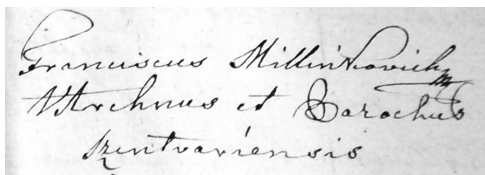 Franciscus Millinkovich
VArchnus et Parochus
szentvaríensis